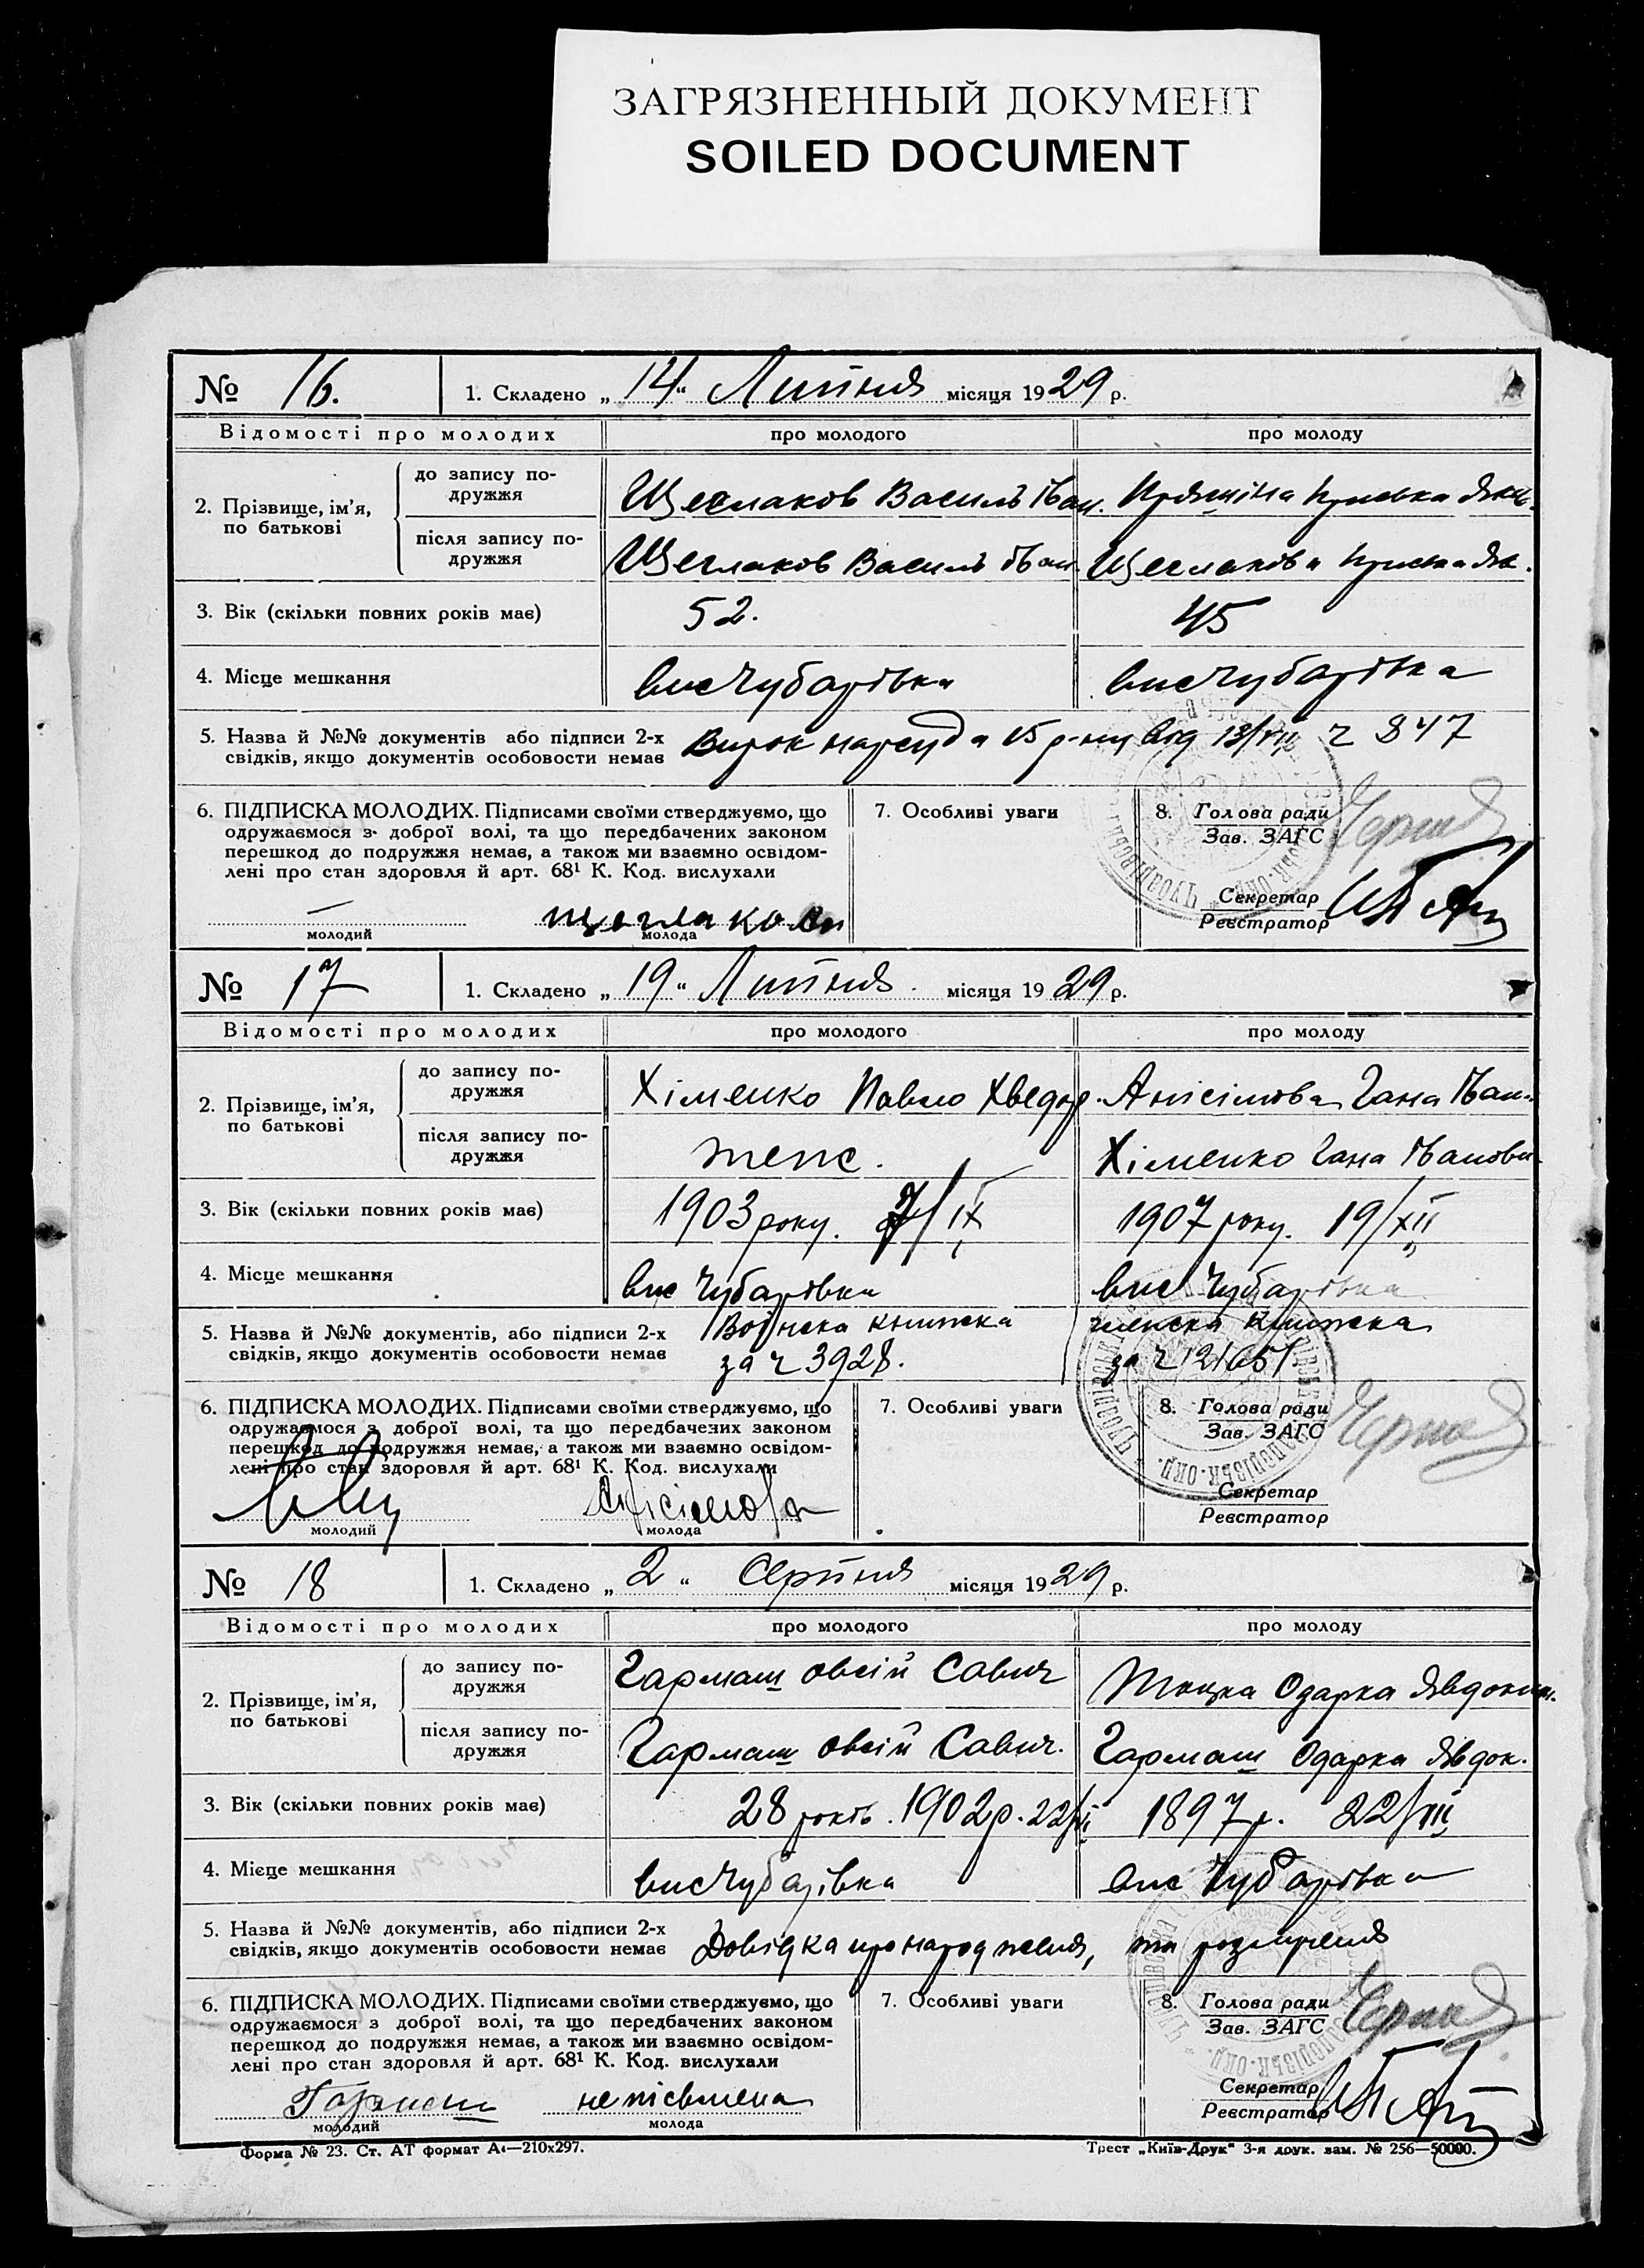 ЗАГРЯЗНЕННЫЙ ДОКУМЕНТ
SOILED DOCUMENT
№ 16. 1. Складено „14“ Липня місяця 1929 р.
Відомості про молодих про молодого про молоду
2. Прізвище, ім’я, по батькові
до запису подружжя Щеглаков Василь Іван. Приська Яков.
після запису подружжя Щеглаков Василь Іван. Щеглакова Приська Як.
3. Вік (скільки повних років має) 52. 45
4. Місце мешкання вис Чубарівка вис Чубарівка
5. Назва й №№ документів або підписи 2-х Вирок нарсуда 15 р-ну від 13/VII ч 847
свідків, якщо документів особовости немає
6. ПІДПИСКА МОЛОДИХ. Підписами своїми стверджуємо, що
одружаємося з доброї волі, та що передбачених законом
перешкод до подружжя немає, а також ми взаємно освідом-
лені про стан здоровля й арт. 68¹ К. Код. вислухали
—
молодий молода
7. Особливі уваги
8. Голова ради
Зав. ЗАГС
Секретар
Реєстратор
№ 17 1. Складено „19“ Липня місяця 1929 р.
Відомості про молодих про молодого про молоду
2. Прізвище, ім’я, по батькові
до запису подружжя Хіменко Павло Хведор. Анісімова Гана Іван.
після запису подружжя теж. Хіменко Гана Іванови
3. Вік (скільки повних років має) 1903 року. 7/IX 1907 року. 19/XII
4. Місце мешкання вис Чубарівка вис Чубарівка
5. Назва й №№ документів, або підписи 2-х Воінска книжка членска книжка
свідків, якщо документів особовости немає за ч 3928. за ч 121651
6. ПІДПИСКА МОЛОДИХ. Підписами своїми стверджуємо, що
одружаємося з доброї волі, та що передбачених законом
перешкод до подружжя немає, а також ми взаємно освідом-
лені про стан здоровля й арт. 68¹ К. Код. вислухали
Анісімова
молодий молода
7. Особливі уваги
8. Голова ради
Зав. ЗАГС
Секретар
Реєстратор
№ 18 1. Складено „2“ Серпня місяця 1929 р.
Відомості про молодих про молодого про молоду
2. Прізвище, ім’я, по батькові
до запису подружжя Гармаш Овсій Савич Одарка Явдоким.
після запису подружжя Гармаш Овсій Савич. Гармаш Одарка Явдок.
3. Вік (скільки повних років має) 28 років. 1902 р. 1897 р. 22/III
4. Місце мешкання вис Чубарівка вис Чубарівка
5. Назва й №№ документів, або підписи 2-х Довідка про народження, та розлучення
свідків, якщо документів особовости немає
6. ПІДПИСКА МОЛОДИХ. Підписами своїми стверджуємо, що
одружаємося з доброї волі, та що передбачених законом
перешкод до подружжя немає, а також ми взаємно освідом-
лені про стан здоровля й арт. 68¹ К. Код. вислухали
Гармаш неписьмена
молодий молода
7. Особливі уваги
8. Голова ради
Зав. ЗАГС
Секретар
Реєстратор
Форма № 23. Ст. АТ формат А₄—210х297. Трест „Київ-Друк“ 3-я друк. зам. № 256—50000.